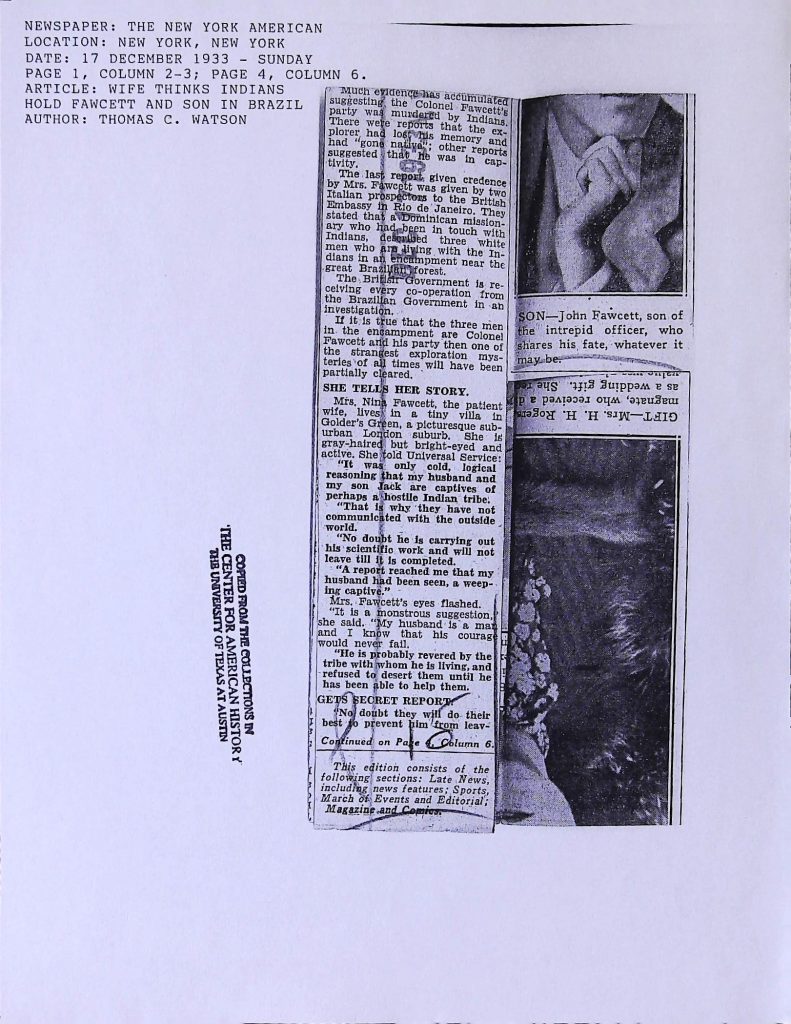 NEWSPAPER: THE NEW YORK AMERICAN
LOCATION: NEW YORK, NEW YORK
DATE: 17 DECEMBER 1933 - SUNDAY
PAGE 1, COLUMN 2-3; PAGE 4, COLUMN 6.
ARTICLE: WIFE THINKS INDIANS
HOLD FAWCETT AND SON IN BRAZIL
AUTHOR: THOMAS C. WATSON
Much evidence has accumulated
suggesting the Colonel Fawcett's
party was murdered by Indians.
There were reports that the ex-
plorer had lost his memory and
had "gone native"; other reports
suggested that he was in cap-
tivity.
The last report given credence
by Mrs. Fawcett was given by two
Italian prospectors to the British
Embassy in Rio de Janeiro. They
stated that a Dominican mission-
ary who had been in touch with
Indians, described three white
men who are living with the In-
dians in an encampment near the
great Brazilian forest.
The British Government is re-
ceiving every co-operation from
the Brazilian Government in an
investigation.
If it is true that the three men
in the encampment are Colonel
Fawcett and his party then one of
the strangest exploration mys-
teries of all times will have been
partially cleared.
SHE TELLS HER STORY.
Mrs. Nina Fawcett, the patient
wife, lives in a tiny villa in
Golder's Green, a picturesque sub-
urban London suburb. She is
gray-haired but bright-eyed and
active. She told Universal Service:
"It was only cold, logical
reasoning that my husband and
my son Jack are captives of
perhaps a hostile Indian tribe.
"That is why they have not
communicated with the outside
world.
"No doubt he is carrying out
his scientific work and will not
leave till it is completed.
"A report reached me that my
husband had been seen, a weep-
ing captive."
Mrs. Fawcett's eyes flashed.
"It is a monstrous suggestion,"
she said. "My husband is a man
and I know that his courage
would never fail.
"He is probably revered by the
tribe with whom he is living, and
refused to desert them until he
has been able to help them.
GETS SECRET REPORT.
"No doubt they will do their
best to prevent him from leav-
Continued on Page 4, Column 6.
This edition consists of the
following sections: Late News,
including news features; Sports,
March of Events and Editorial;
Magazine and Comics.
SON—John Fawcett, son of
the intrepid officer, who
shares his fate, whatever it
may be.
GIFT—Mrs. H. H. Rogers
magnate, who received a
as a wedding gift. She
COPIED FROM THE COLLECTIONS IN
THE CENTER FOR AMERICAN HISTORY
THE UNIVERSITY OF TEXAS AT AUSTIN